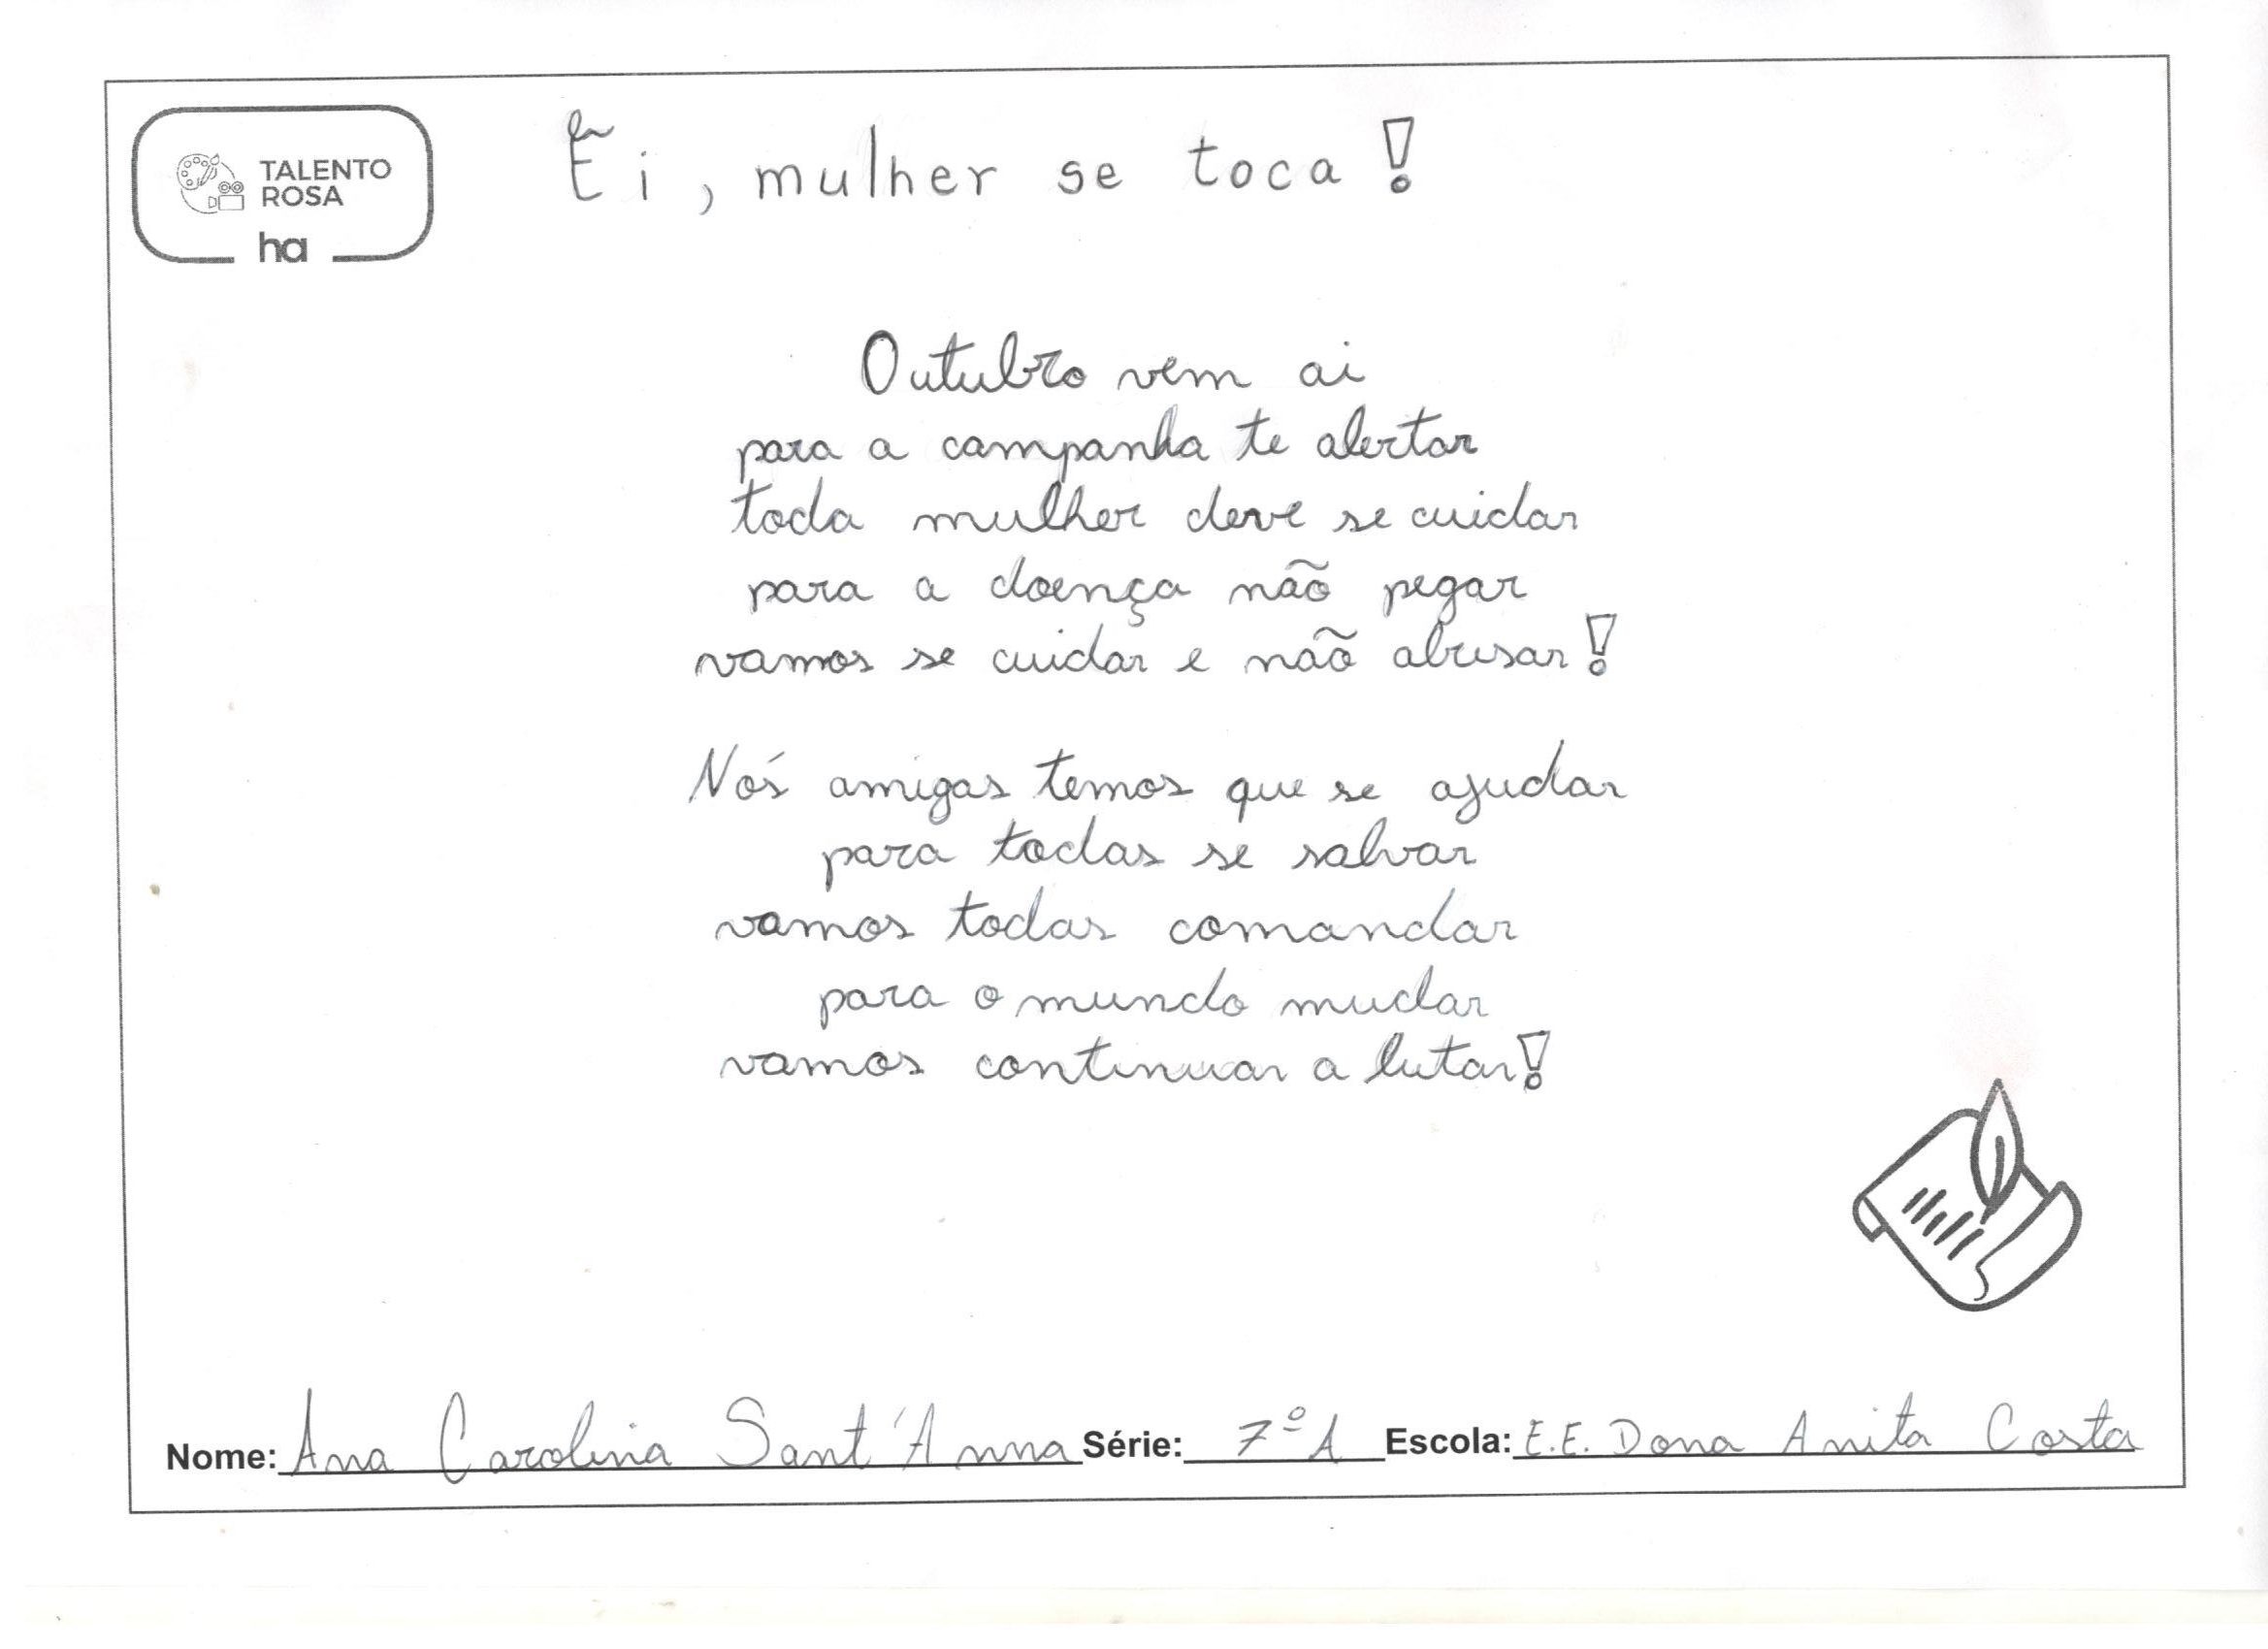 TALENTO
ROSA
ha
Ei, mulher se toca!
Outubro vem ai
para a campanha te alertar
toda mulher deve se cuidar
para a doença não pegar
vamos se cuidar e não abusar!
Nós amigas temos que se ajudar
para todas se salvar
vamos todas comandar
para o mundo mudar
vamos continuar a lutar!
Nome: Ana Carolina Sant'Anna Série: 7º A Escola: E.E. Dona Anita Costa